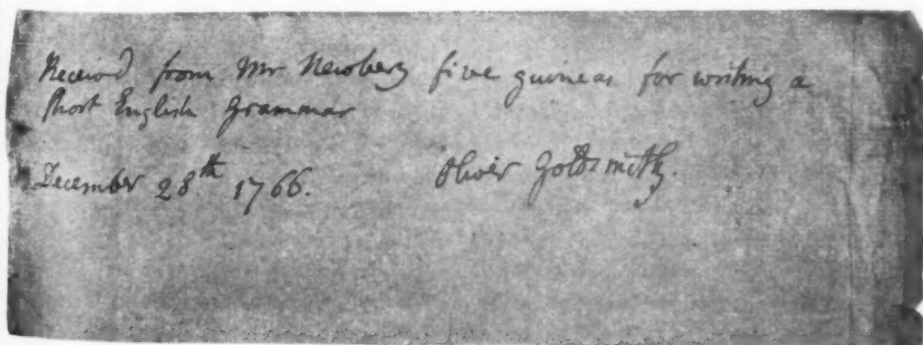 Receiv'd from Mr Newbery five guineas for writing a
short English Grammar
December 28th 1766. Oliver Goldsmith.